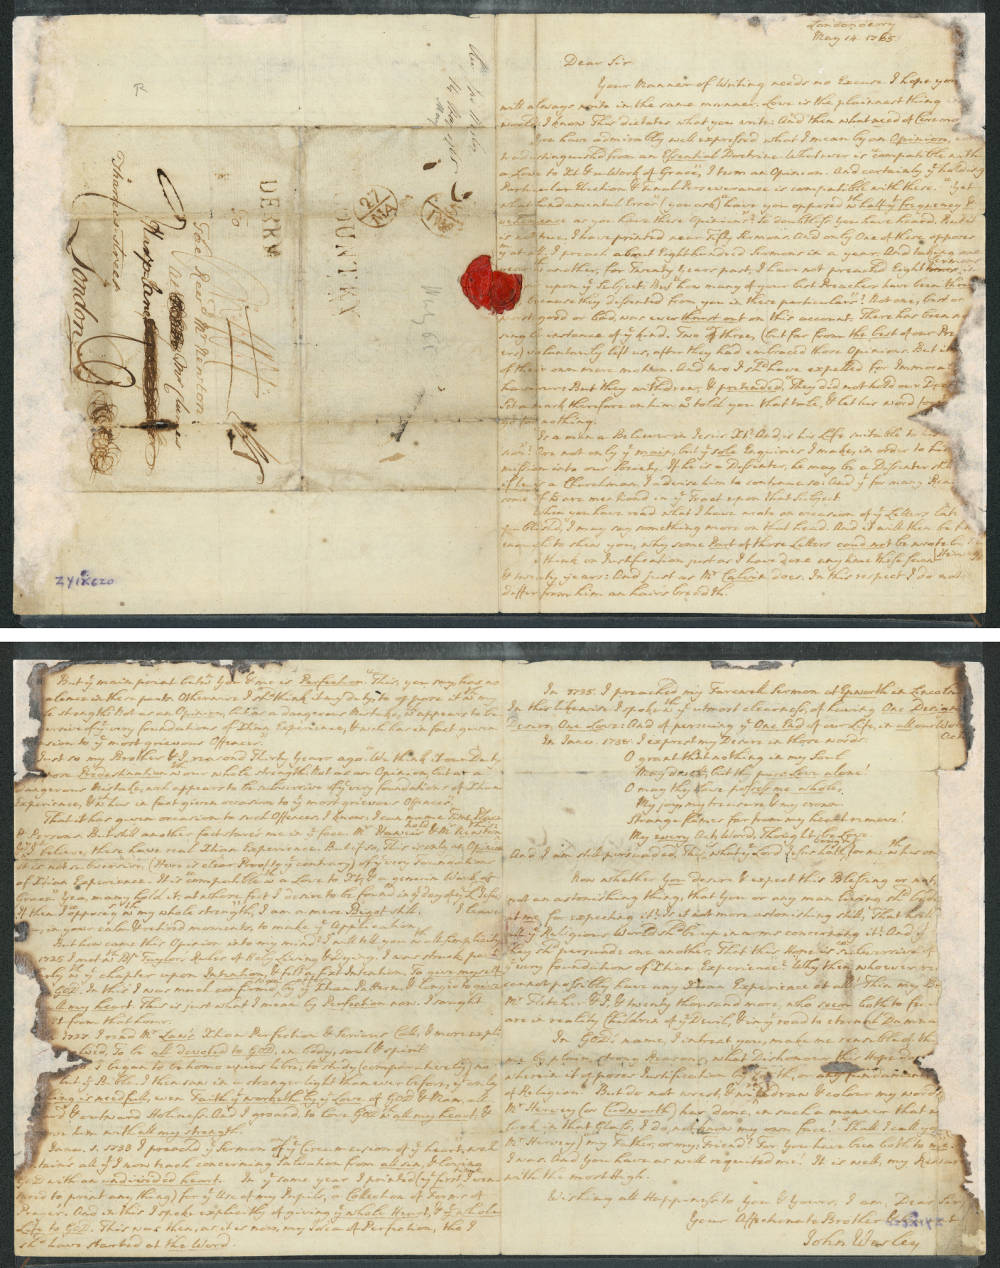 Londonderry
May 14 1765
Dear Sir
Your Manner of Writing needs no Excuse. I hope you
will always write in the same manner. Love is the plainest thing
world: I know This dictates what you write: And then what need of Ceremony
You have admirably well expressed what I mean by an Opinion,
tradistinguish'd from an Essential Doctrine. Whatever is "compatible with
a Love to Xt, & a Work of Grace", I term an Opinion. And certainly ye holding
Particular Election & Final Perseverance is compatible with these. "Yet
what fundamental Error (you ask) have you opposed wth half ye frequency &
vehemence as you have these Opinions"? So doubtless you have heard. But
is not true. I have printed near Fifty Sermons, And only One of these opposes
ym at all. I preach about Eight hundred Sermons in a year, And taking one
year wth another, for Twenty years past, I have not preached Eight Sermons
upon ye Subject. But "How many of your best Preachers have been thrust
because they dissented from you in these particulars"? Not one, best or
worst, good or bad, was ever thrust out on this account. There has been
single instance of ye kind. Two or three, (but far from the best of our Prea
ers) voluntarily left us, after they had embraced those Opinions. But it
of their own mere motion. And two I shd have expelled for Immoral
haviour: But they withdrew, & pretended "They did not hold our
Set a mark therefore on him yt told you that tale, & let his word for
nothing.
Is a man a Believer in Jesus Xt? And, is his Life suitable to his
sion? Are not only ye main, but ye sole Enquiries I make, in order to his
mission into our Society. If he is a Dissenter, he may be a Dissenter still
if he is a Churchman, I advise him to continue so: And yt for many Rea
some of wch are mentioned in ye Tract upon that Subject
When you have read what I have wrote on occasion of ye Letters late
publish'd, I may say something more on that head. And it will then be time
enough to shew you, why some Part of those Letters could not be wrote by
I think on Justification just as I have done any time these seven
& twenty years: And just as Mr Calvin does. In this respect I do not
differ from him an hair's breadth.
Londonderry
14 May 1765
DERRY
COUNTRY
27
MA
To
The Revd Mr Newton
Mr Clunie
Thames Street
London
But ye main point betwn You & me is Perfection. "This, you say, has no
alence in these parts. Otherwise I shd think it my duty to oppose it wth my
le strength: Not as an Opinion, but as a dangerous Mistake, wch appears to be
versive of ye very foundations of Xtian Experience, & wch has in fact given
casion to ye most grievous Offences.
Just so my Brother & I reason'd Thirty Years ago. "We think it our Duty
oppose Predestination wth our whole strength: Not as an Opinion, but as a
dangerous Mistake, wch appears to be subversive of ye very foundations of Xtian
Experience, & wch has in fact given occasion to ye most grievous Offences".
That it has given occasion to such Offences, I know: I can name Time, Place
& Persons. But still another fact stares me in ye face. Mr Haweis & Mr Newton hold this
I believe, these have real Xtian Experience. But if so, This is only an Opinion:
It is not subversive (Here is clear Proof to ye contrary) of ye very Foundations
of Xtian Experience. It is "compatible wth a Love to Xt, & a genuine Work of
Grace". Yea, many hold it, at whose feet I desire to be found in ye day of L. Jesus
If then I oppose This wth my whole strength, I am a mere Bigot still. I leave
in your calm & retired moments, to make ye Application.
But how came this Opinion into my mind? I will tell you wth all Simplicity
1725 I met wth Bp Taylor's Rules of Holy Living & Dying. I was struck par
larly wth ye chapter upon Intention, & felt a fixt Intention, To give myself
GOD. In this I was much confirm'd soon after by ye Xtian Pattern, & long'd to give
all my heart. This is just what I mean by Perfection now. I sought
it from that hour.
1727 I read Mr Law's Xtian Perfection & Serious Call, & more expli
lved, To be all devoted to GOD, in body, soul & spirit
I began to be homo unius libri, to study (comparatively) no
but ye Bible. I then saw in a stronger light than ever before, yt only
thing is needful, even Faith yt worketh by ye Love of GOD & Man, all
& outward Holiness. And I groan'd to love GOD wth all my heart, &
ve him with all my strength.
January 1. 1733 I preach'd ye Sermon on ye Circumcision of ye heart, wch
tains all yt I now teach concerning Salvation from all sin, & loving
GOD with an undivided heart. In ye same year I printed (ye first Time I ven
tured to print any thing) for ye Use of my Pupils, a Collection of Forms of
Prayer. And in this I spoke explicitly of giving ye whole Heart, & ye whole
Life to GOD. This was then, as it is now, my Idea of Perfection, tho' I
shd have started at the Word.
In 1735. I preached my Farewel Sermon at Epworth in Lincoln
In this likewise I spoke wth ye utmost clearness, of having One Design
Desire, One Love: And of pursuing ye One End of our Life, in all our Words
In Janry. 1738. I exprest my Desire in those words.
O grant that nothing in my Soul
May dwell, but thy pure Love alone!
O may thy Love possess me whole,
My joy, my treasure, & my crown.
Strange flames far from my heart remove!
My every Act, Word, Thought, be Love.
And I am still persuaded, This is what ye Lord Jesus hath bought for me, wth his own
Now whether You desire & expect this Blessing or not,
not an astonishing thing, that You or any man living shd
at me for expecting it? Is it not more astonishing still, "That
all ye Religious World shd be up in arms concerning it? And yt
they shd persuade one another, That this Hope is subversive of
ye very foundations of Xtian Experience"? Why then, whoever re
cannot possibly have any Xtian Experience at all. Then my Br
Mr Fletcher & I, & twenty thousand more, who seem both to
are in reality Children of ye Devil, & in ye road to eternal Damna
In GOD's name, I intreat you, make me sensible of this
me by plain, strong Reasons, what Dishonour this Hope does
wherein it opposes Justification by Faith, or any fundamental
of Religion. But do not wrest, & wiredraw & colour my words
Mr Hervey (or Cudworth) has done, in such a manner that
look in that Glass, I do not know my own face! "Shall I call you
Mr Hervey) my Father, or my Friend? For You have been both to me".
I was: And You have as well requited me! It is well, my Reward
with the most High.
Wishing all Happiness to You & Yours, I am, Dear Sir,
Your Affectionate Brother
John Wesley